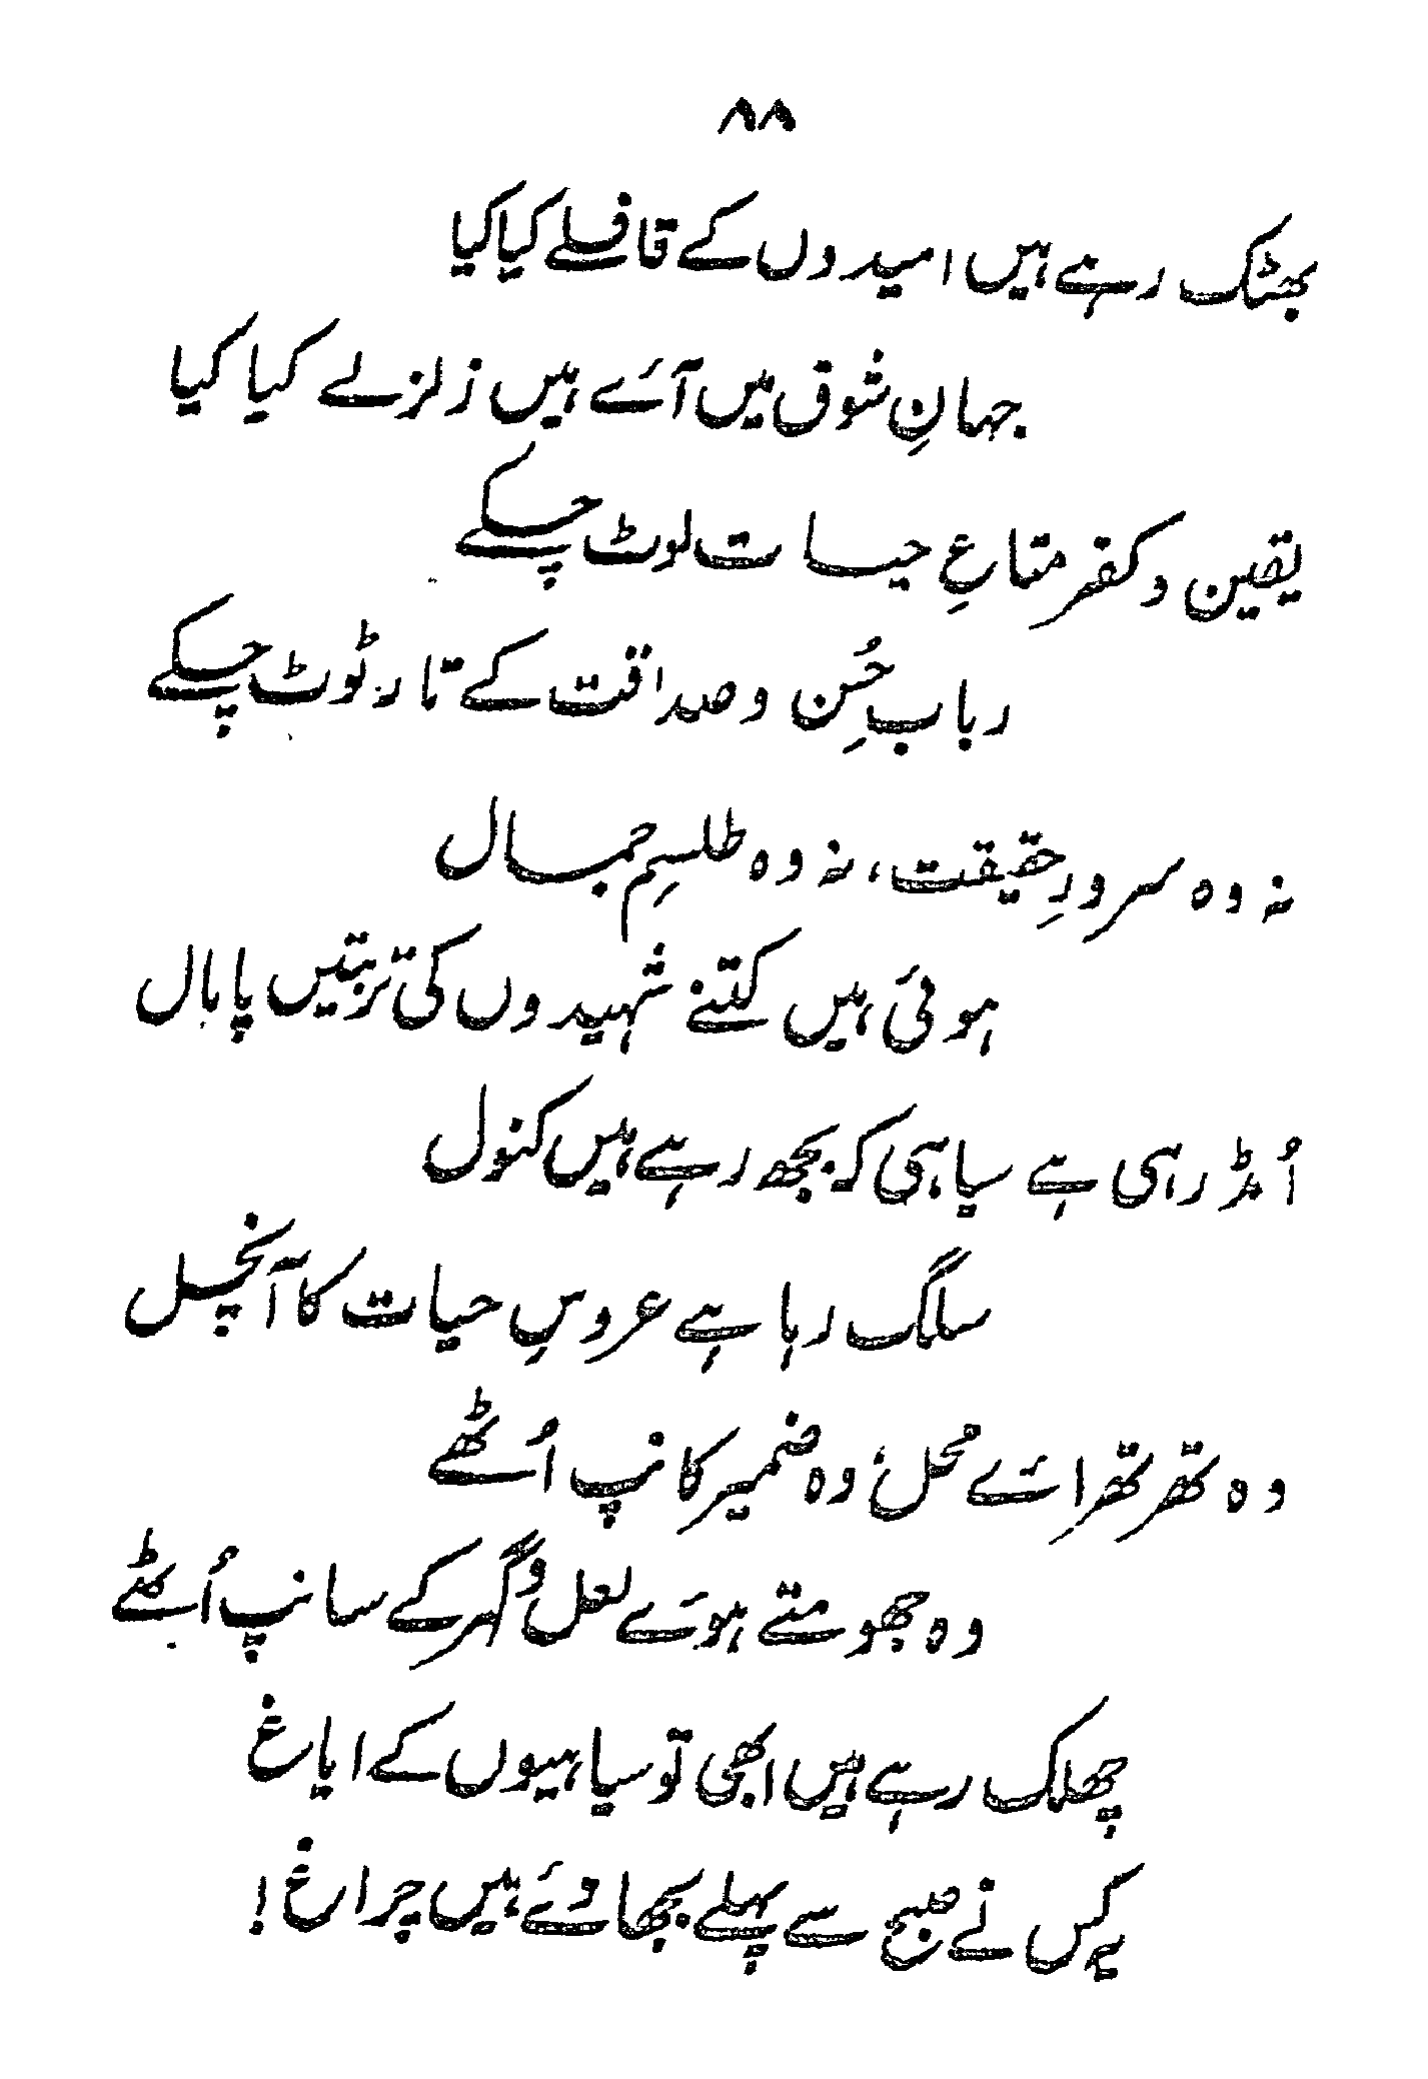 ۸۸
بھٹک رہے ہیں امیدوں کے قافلے کیا کیا
جہانِ شوق میں آئے ہیں زلزلے کیا کیا
یقین و کفر متاعِ حیات لوٹ چکے
ربابِ حُسن و صداقت کے تار ٹوٹ چکے
نہ وہ سرورِ حقیقت، نہ وہ طلسمِ جمال
ہوئی ہیں کتنے شہیدوں کی تربتیں پامال
اُمڈ رہی ہے سیاہی کہ بجھ رہے ہیں کنول
سلگ رہا ہے عروسِ حیات کا آنچل
وہ تھرتھرائے محل، وہ ضمیر کانپ اُٹھے
وہ جھومتے ہوئے لعل و گہر کے سانپ اُٹھے
چھلک رہے ہیں ابھی تو سیاہیوں کے ایاغ
یہ کس نے صبح سے پہلے بجھا دئے ہیں چراغ!